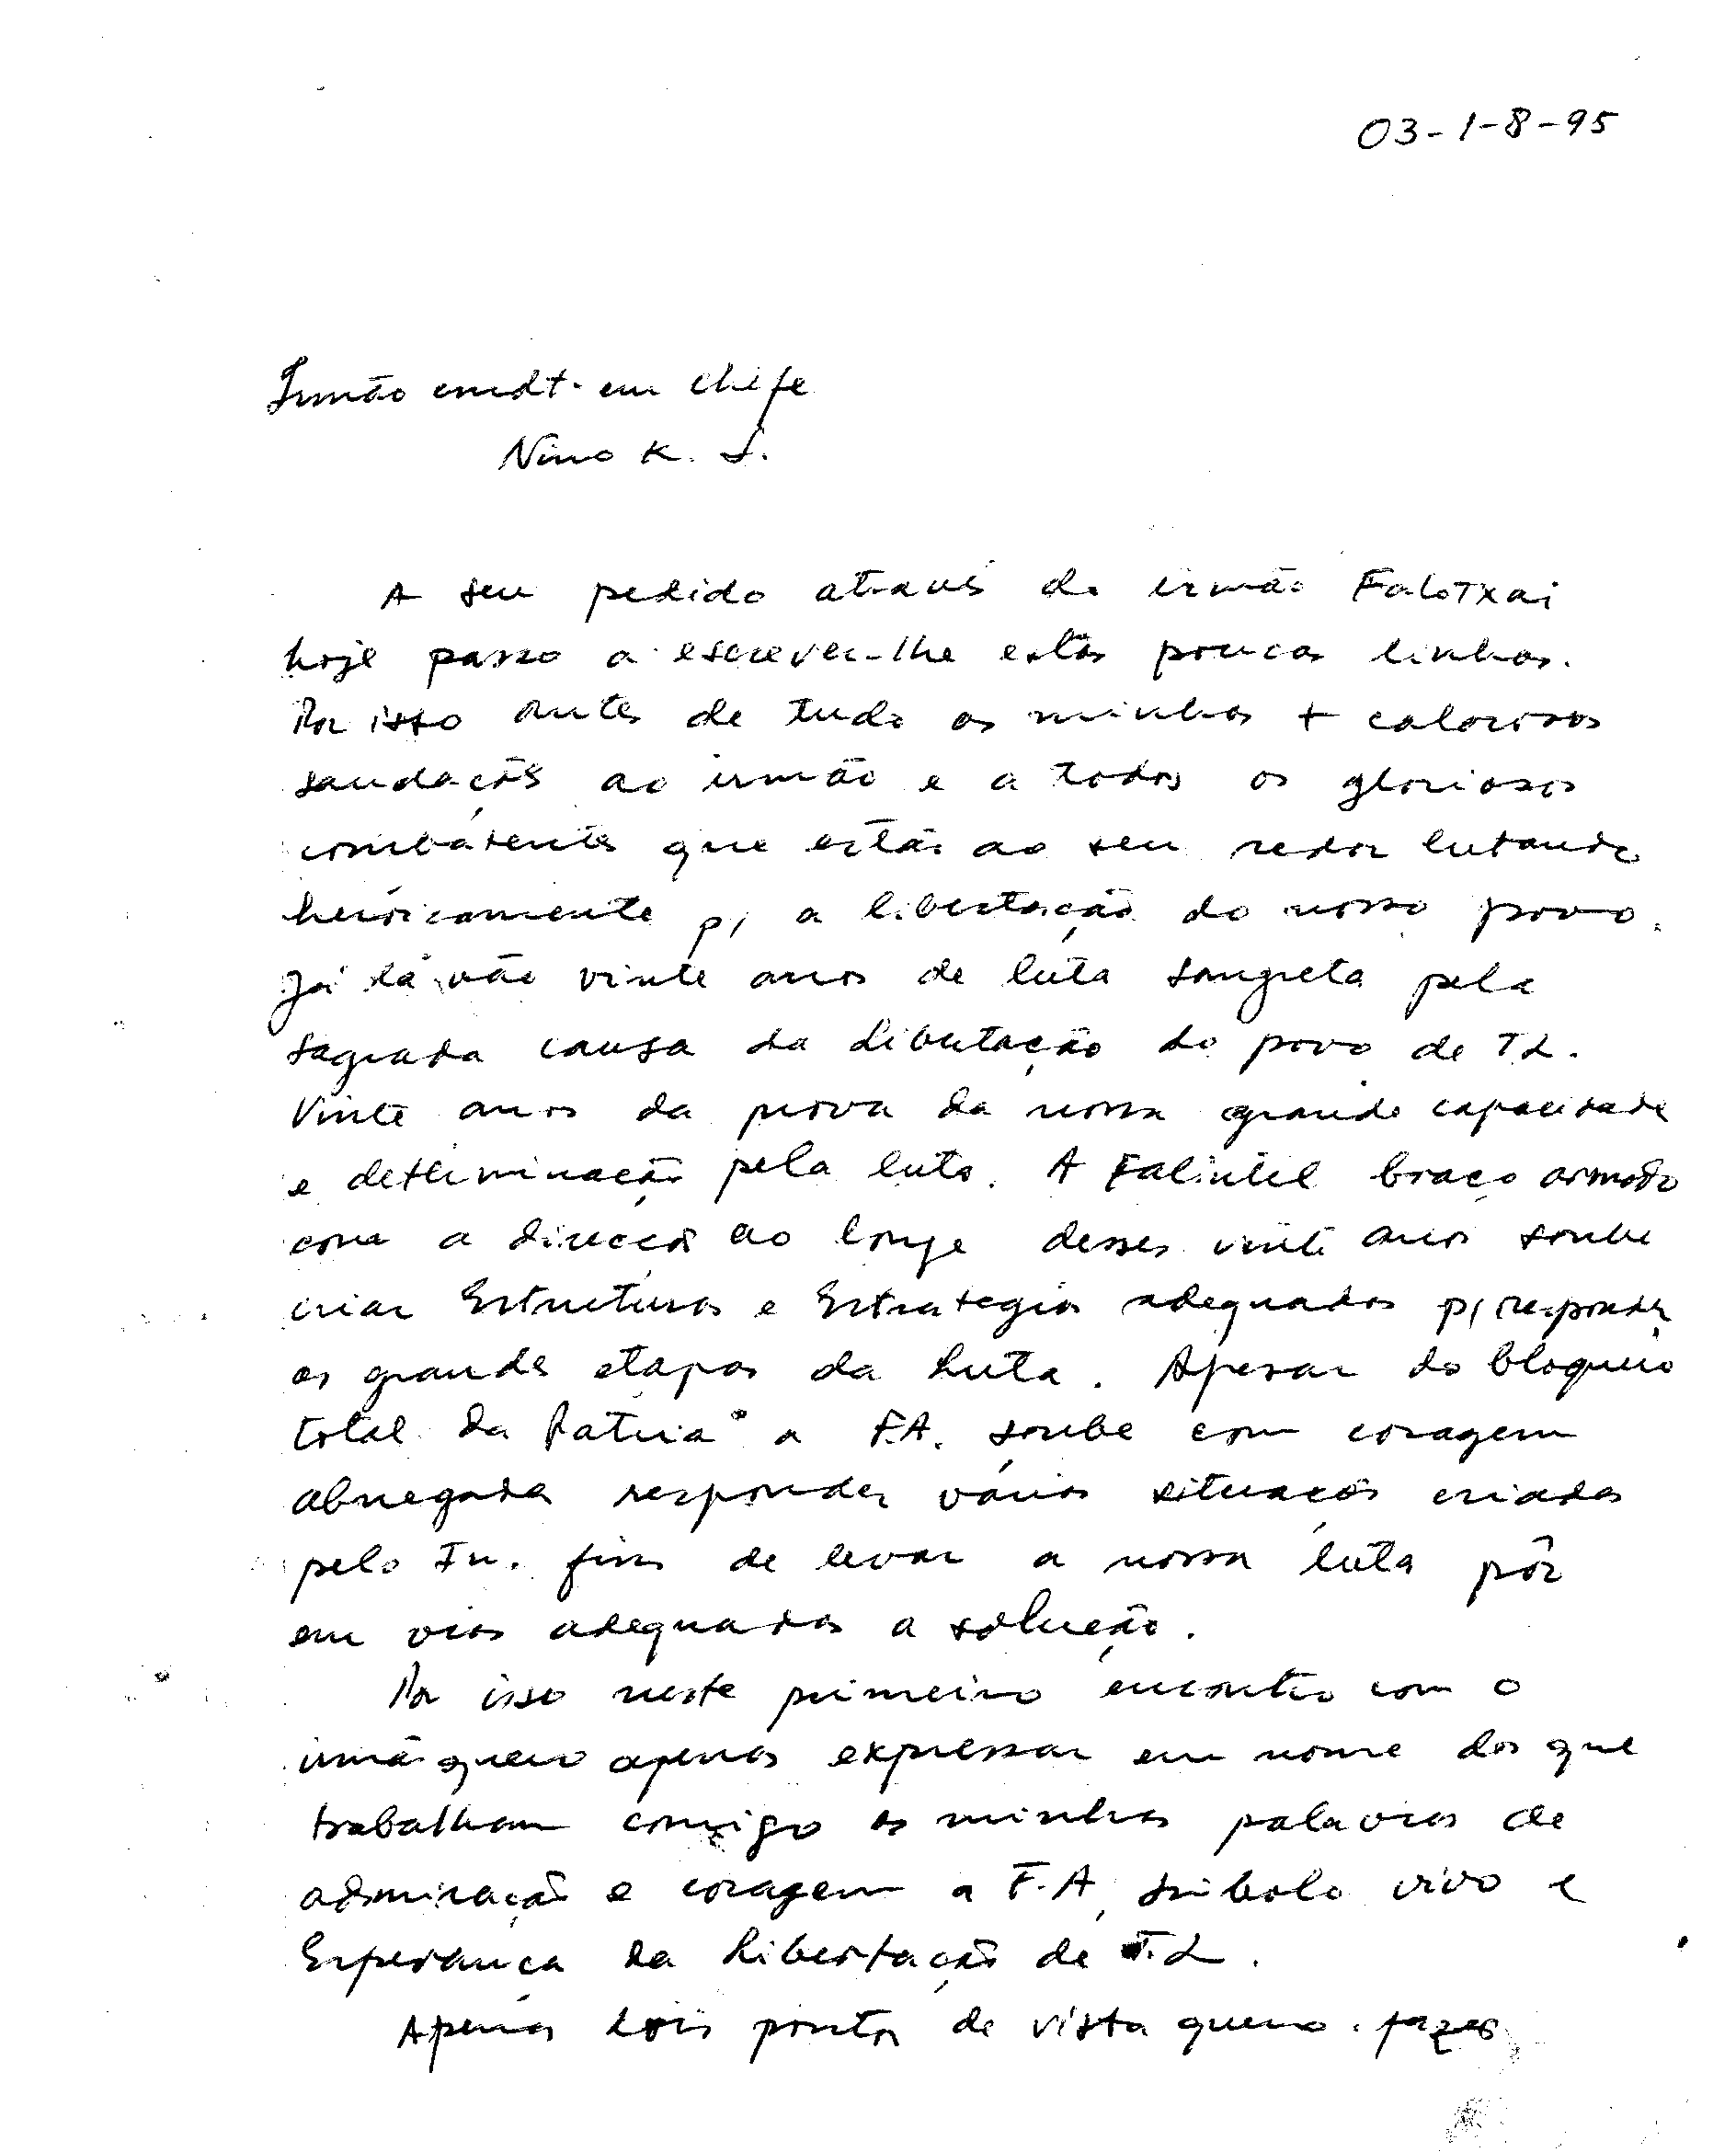 03-1-8-95
Irmão cmdt. em chefe
Nino K. S.
A seu pedido através do irmão Falotxai
hoje passo a escrever-lhe estas poucas linhas.
Por isso antes de tudo as minhas + calorosas
saudações ao irmão e a todos os gloriosos
combatentes que estão ao seu redor lutando
heróicamente p/ a libertação do nosso povo.
Já lá vão vinte anos de luta sangreta pela
sagrada causa da libertação do povo de T.L.
Vinte anos da prova da nossa grande capacidade
e determinação pela luta. A Falintil braço armado
com a direcção ao longo desses vinte anos soube
criar Estruturas e Estrategias adequadas p/ responder
as grandes etapas da Luta. Apesar do bloqueio
total da Patria a F.A. soube com coragem
abnegada responder várias situações criadas
pelo In. fim de levar a nossa luta pôr
em vias adequadas a solução.
Por isso neste primeiro encontro com o
irmão quero apenas expressar em nome dos que
trabalham comigo as minhas palavras de
admiração e coragem a F.A, símbolo vivo e
Esperança da Libertação de T.L.
Apenas dois pontos de vista quero fazer